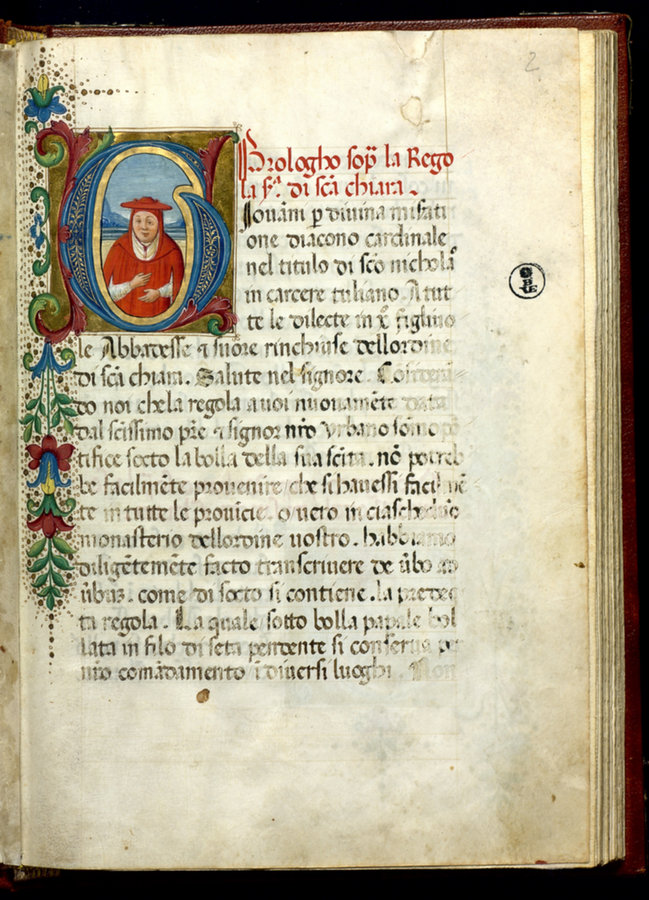 2
Prologho sop̄ la Rego
la sᵃ. di sc̄a chiara.
Giouāni p̄ diuina miserati
one diacono cardinale
nel titulo di sc̄o nichola
in carcere tuliano. A tut
te le dilecte in x̄ᵒ figliuo
le Abbadesse ⁊ suore rinchiuse dellordine
di sc̄a chiara. Salute nel signore. Considerā
do noi che la regola a uoi nuouamēte data
dal sc̄issimo pr̄e ⁊ signor nr̄o Vrbano sōmo pō
tifice socto la bolla della sua sc̄ita. nō potreb
be facilmēte prouenire che si hauessi facilmē
te in tutte le prouīcie. o uero in ciascheduno
monasterio dellordine uostro. habbiamo
diligētemēte facto transcriuere de ūbo ad
ūbuz. come di socto si contiene. la predec
ta regola. La quale sotto bolla papale bol
lata in filo di seta pendente si conserua per
nr̄o comādamento ī diuersi luoghi. Non